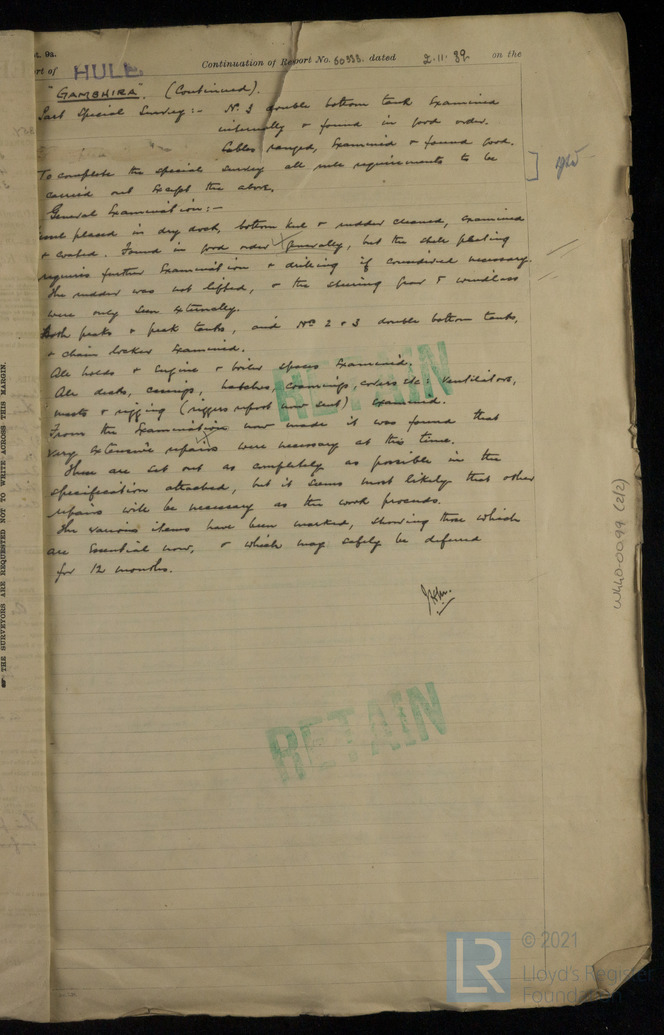 t. 9a.
rt of HULL Continuation of Report No. 50333. dated 2.11.39 on the
"GAMBHIRA". (Continued).
Part Special Survey:- No 3 double bottom tank examined
internally & found in good order.
Cables ranged, examined & found good.
To complete the special survey all rule requirements to be
carried out except the above.
General Examination:-
placed in dry dock, bottom keel & rudder cleaned, examined
& coated. Found in good order generally, but the shell plating
requires further examination & drilling if considered necessary.
The rudder was not lifted, & the steering gear & windlass
were only seen externally.
Both peaks & peak tanks, and Nos 2 & 3 double bottom tanks,
& chain locker examined.
All holds & engine & boiler spaces examined.
All decks, casings, hatches, coamings, covers etc: ventilators,
masts & rigging (riggers report now sent) examined.
From the examination now made it was found that
very extensive repairs were necessary at this time.
These are set out as completely as possible in the
specification attached, but it seems most likely that other
repairs will be necessary as the work proceeds.
The various items have been marked, showing those which
are essential now, & which may safely be deferred
for 12 months.
RETAIN
RETAIN
THE SURVEYORS ARE REQUESTED NOT TO WRITE ACROSS THIS MARGIN.
W440-0099 (2/2)
LR © 2021
Lloyd's Register
Foundation